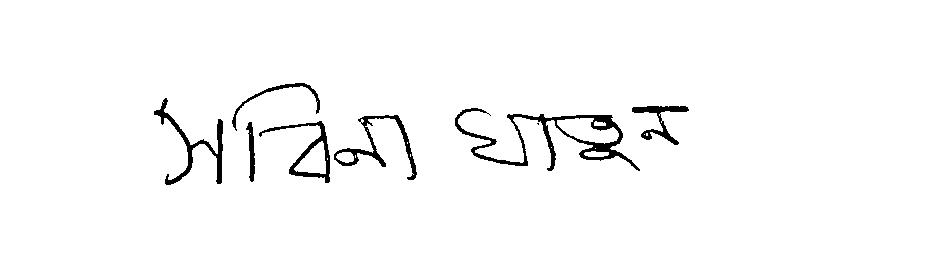 সবিনা খাতুন